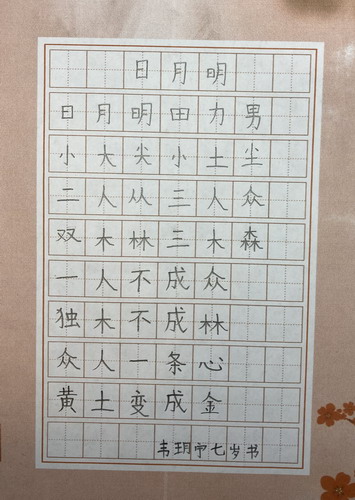 日月明
日月明田力男
小大尖小土尘
二人从三人众
双木林三木森
一人不成众
独木不成林
众人一条心
黄土变成金
韦玥宁七岁书